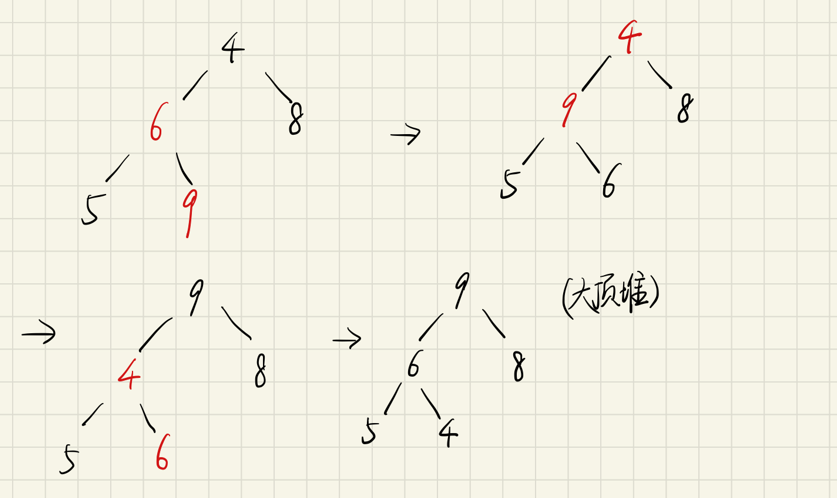 4
6 8
5 9
→
4
9 8
5 6
→
9
4 8
5 6
→
9
6 8
5 4
(大顶堆)